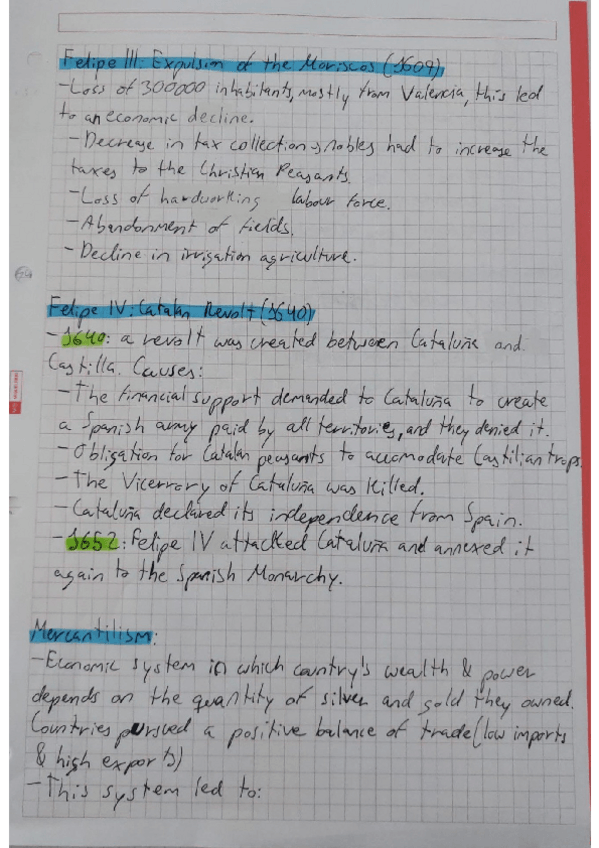 Felipe III: Expulsion of the Moriscos (1609)
-Loss of 300000 inhabitants, mostly from Valencia, this led
to an economic decline.
-Decrease in tax collection → nobles had to increase the
taxes to the Christian Peasants.
-Loss of hardworking labour force.
-Abandonment of fields.
-Decline in irrigation agriculture.
Felipe IV: Catalan Revolt (1640)
-1640: a revolt was created between Cataluña and
Castilla. Causes:
-The financial support demanded to Cataluña to create
a Spanish army paid by all territories, and they denied it.
-Obligation for Catalan peasants to accomodate Castilian trops.
-The Vicerroy of Cataluña was killed.
-Cataluña declared its independence from Spain.
-1652: Felipe IV attacked Cataluña and annexed it
again to the Spanish Monarchy.
Mercantilism:
-Economic system in which country's wealth & power
depends on the quantity of silver and gold they owned.
Countries pursued a positive balance of trade (low imports
& high exports)
-This system led to: